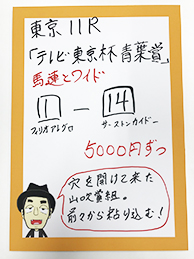 東京11R
「テレビ東京杯青葉賞」
馬連とワイド
1 − 14
フィリオアレグロ
サーストンカイドー
5000円ずつ
穴を開けて来た
山吹賞組。
前々から粘り込む!